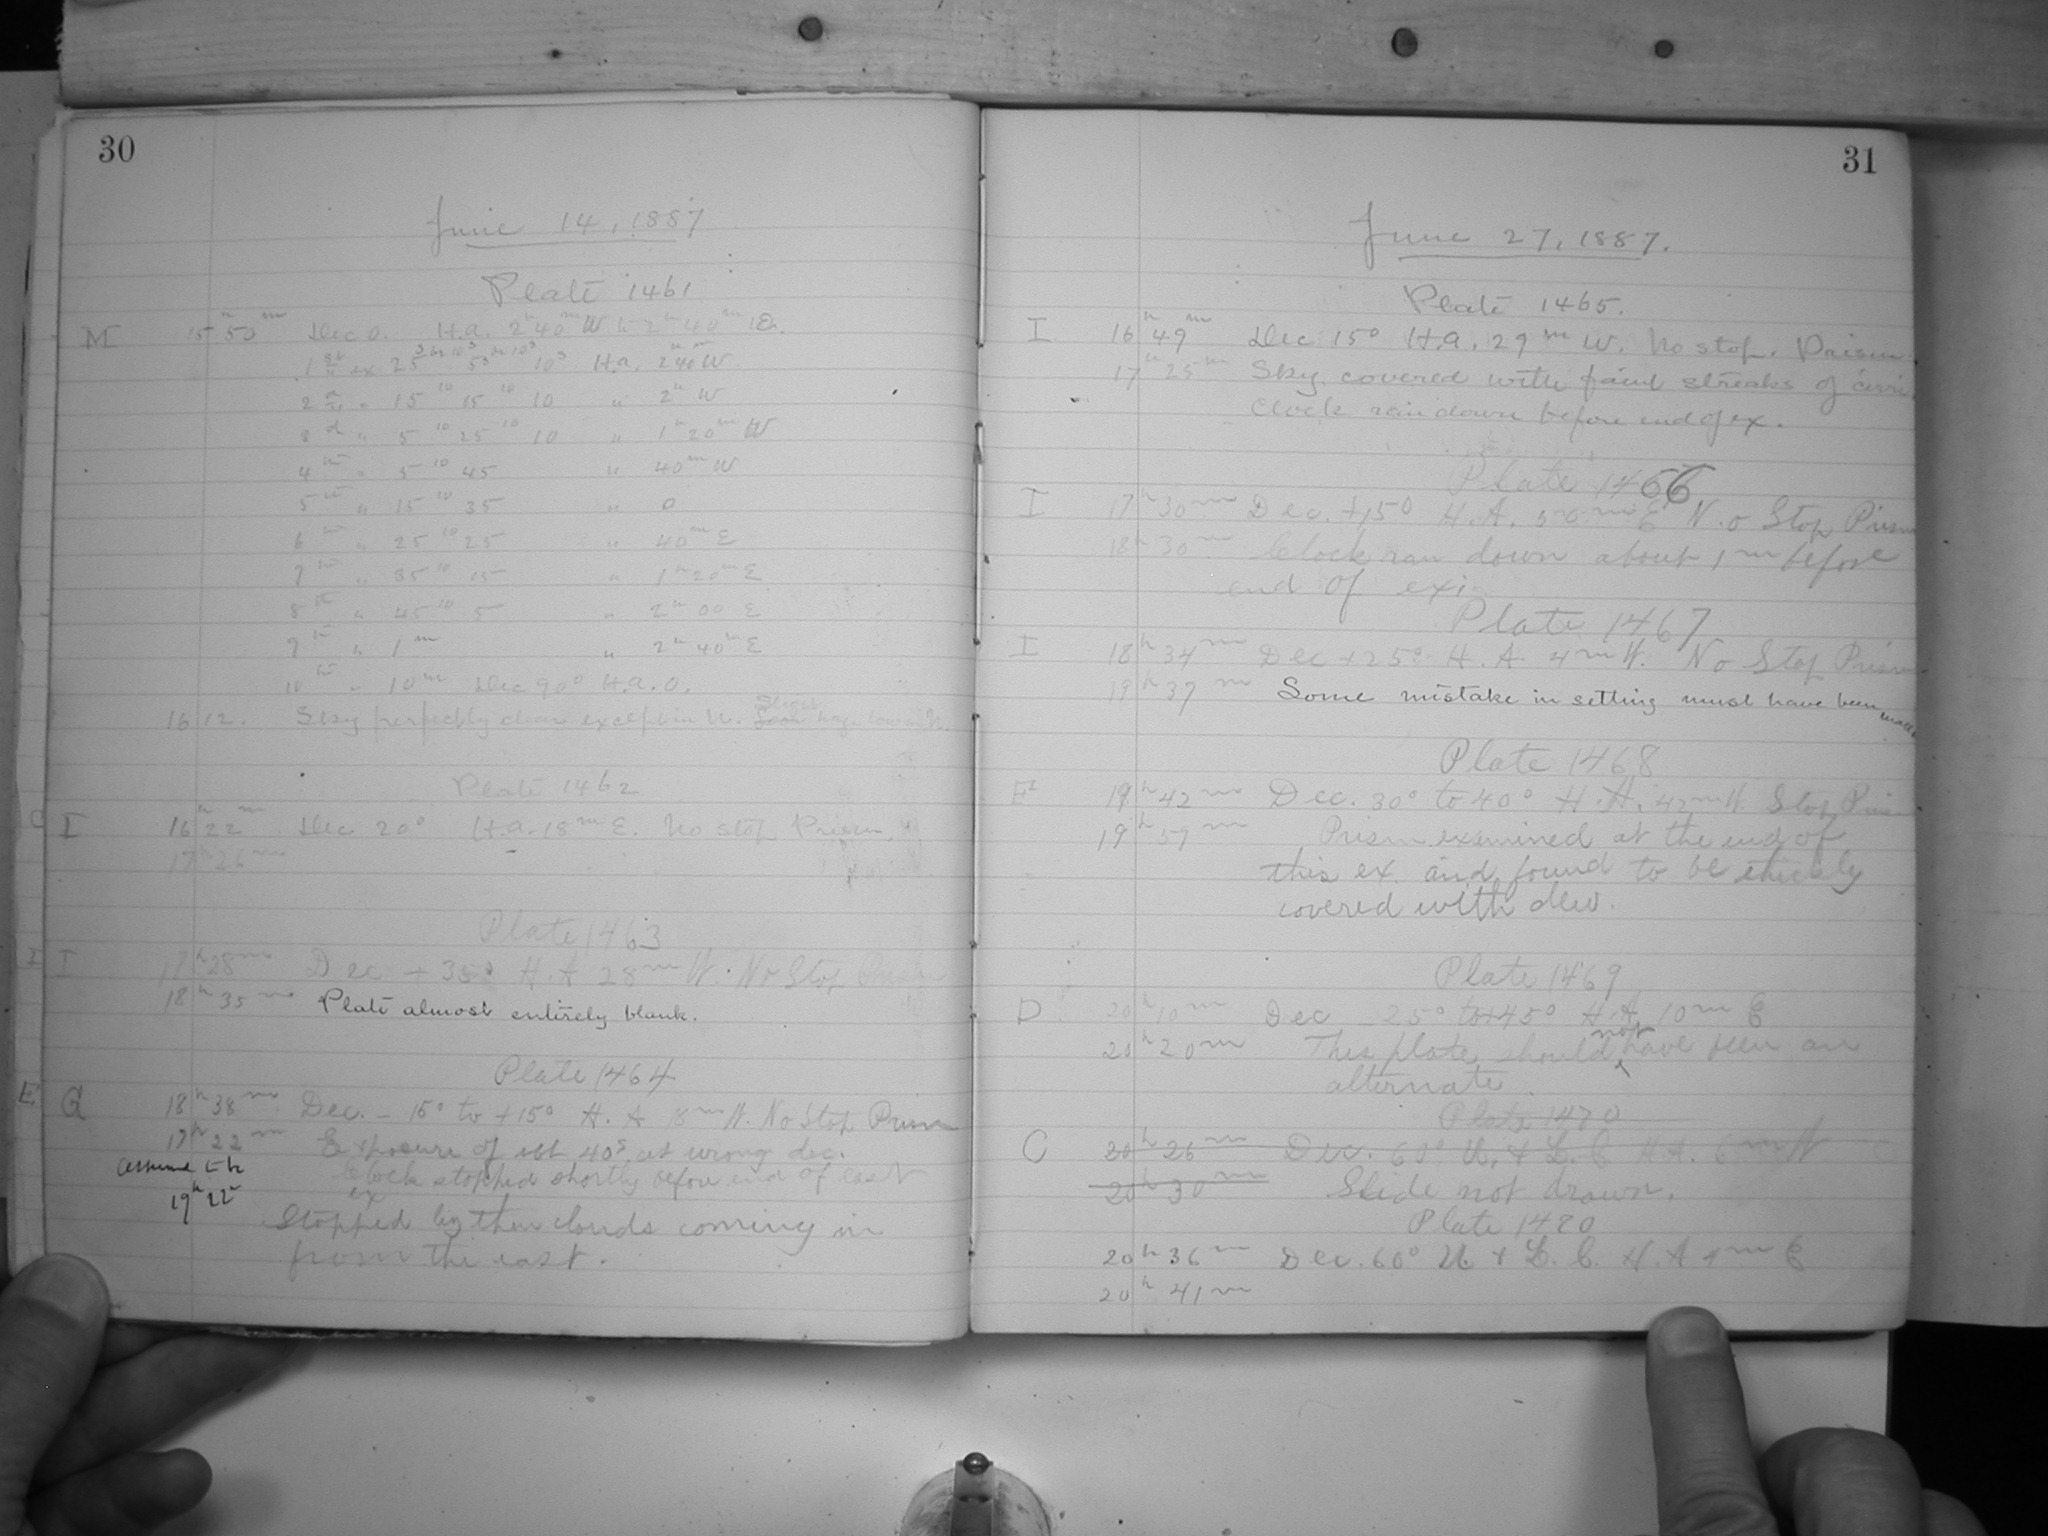 30
June 14, 1887
Plate 1461
M 15h 50m Dec 0. H.a. 2h 40m W to 2h 40m E.
1st ex 25s 10s 5s 10s 10s H.a. 2h 40m W
2d " 15 10 15 10 10 " 2h W
3d " 5 10 25 10 10 " 1h 20m W
4th " 5 10 45 " 40m W
5th " 15 10 35 " 0
6th " 25 10 25 " 40m E
7th " 35 10 15 " 1h 20m E
8th " 45 10 5 " 2h 00 E
9th " 1m " 2h 40m E
10th " 10m Dec 90° H.a. 0.
16 12. Sky perfectly clear except in N. Slight haze low in N.
Plate 1462
C I 16h 22m Dec 20° H.a. 18m E. No stop Prism.
17h 26m
Plate 1463
I I 17h 28m Dec + 35° H.A 28m W. No Stop Prism
18h 35m Plate almost entirely blank.
Plate 1464
E G 18h 38m Dec. - 15° to +15° H. A 8m W. No Stop Prism
17h 22m Exposure of abt 40s at wrong dec.
assume Clock stopped shortly before end of last
19h 22m ex
Stopped by thin clouds coming in
from the east.
31
June 27, 1887.
Plate 1465.
I 16h 49m Dec 15° H.a. 29m W. No stop. Prism
17h 25m Sky covered with faint streaks of cirri.
Clock ran down before end of ex.
Plate 1466
I 17h 30m Dec. +15° H.A. 50m E No Stop Prism
18h 30m Clock ran down about 1m before
end of ex.
Plate 1467
I 18h 34m Dec +25° H. A. 4m W. No Stop Prism
19h 37m Some mistake in setting must have been made
Plate 1468
E 19h 42m Dec. 30° to 40° H.A. 42m W. Stop Prism
19h 59m Prism examined at the end of
this ex. and found to be thickly
covered with dew.
Plate 1469
D 20h 10m Dec - 25° to +45° H.A. 10m E
20h 20m This plate should not have been an
alternate.
Plate 1470
C 20h 26m Dec. 60° U. & L. C H.A. 6m W
20h 30m Slide not drawn.
Plate 1470
20h 36m Dec. 60° U & L. C. H. A 4m E
20h 41m